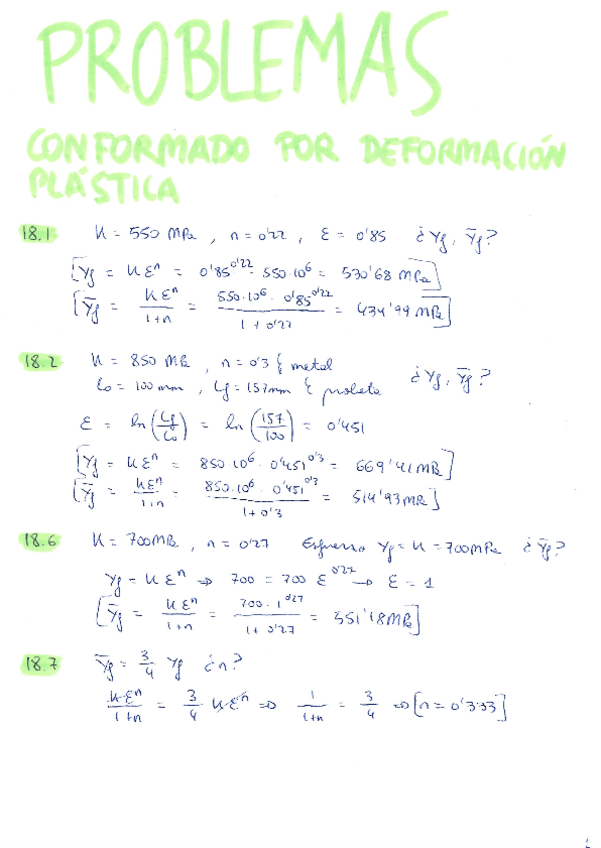 PROBLEMAS
CONFORMADO POR DEFORMACIÓN
PLÁSTICA
18.1 K = 550 MPa , n = 0'22 , ε = 0'85 ¿Yf, Ȳf?
[Yf = K ε^n = 0'85^0'22 · 550·10^6 = 530'68 MPa]
[Ȳf = K ε^n / 1+n = 550·10^6 · 0'85^0'22 / 1 + 0'22 = 434'99 MPa]
18.2 K = 850 MPa , n = 0'3 { metal
L0 = 100 mm , Lf = 157mm { probeta ¿Yf, Ȳf?
ε = ln (Lf/L0) = ln (157/100) = 0'451
[Yf = K ε^n = 850·10^6 · 0'451^0'3 = 669'41 MPa]
[Ȳf = K ε^n / 1+n = 850·10^6 · 0'451^0'3 / 1+0'3 = 514'93 MPa]
18.6 K = 700 MPa , n = 0'27 Esfuerzo Yf = K = 700 MPa ¿Ȳf?
Yf = K ε^n ⇒ 700 = 700 ε^0'27 → ε = 1
[Ȳf = K ε^n / 1+n = 700 · 1^0'27 / 1+0'27 = 551'18 MPa]
18.7 Ȳf = 3/4 Yf ¿n?
K·ε^n / 1+n = 3/4 K·ε^n ⇒ 1 / 1+n = 3/4 ⇒ [n = 0'333]